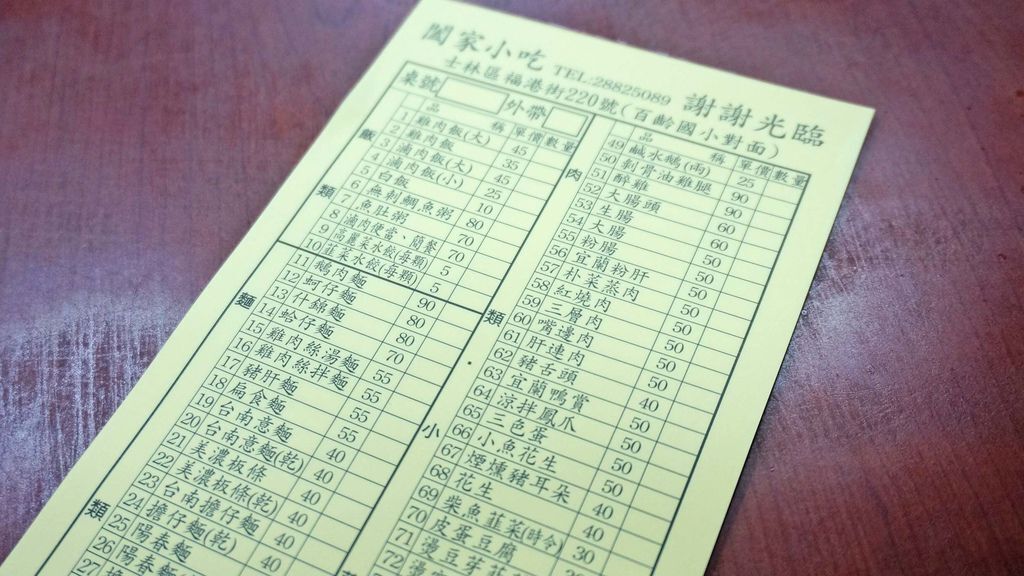 閤家小吃 TEL:28825089 謝謝光臨
士林區福港街220號(百齡國小對面)
桌號 外帶
品 稱 單價 數量
飯類
1 雞肉飯(大) 45
2 雞肉飯 35
3 滷肉飯(大) 45
4 滷肉飯(小) 25
5 白飯 10
6 無刺鯛魚粥 80
7 魚肚粥 70
8 滷肉便當、簡餐 70
9 高麗菜水餃(每顆) 5
10 韭菜水餃(每顆) 5
麵類
11 鵝肉麵 90
12 蚵仔麵 80
13 什錦麵 80
14 蛤仔麵 70
15 雞肉絲湯麵 55
16 雞肉絲拌麵 55
17 豬肝麵 55
18 扁食麵 40
19 台南意麵 40
20 台南意麵(乾) 40
21 美濃板條 40
22 美濃板條(乾) 40
23 台南擔仔麵
24 擔仔麵(乾)
25 陽春麵
26 陽春麵
27
品 稱 單價 數量
肉類
49 鹹水鵝(兩) 25
50 蔥油雞腿 90
51 醉雞 90
52 大腸頭 60
53 生腸 60
54 大腸 50
55 粉腸 50
56 宜蘭粉肝 50
57 朴菜蒸肉 50
58 紅燒肉 50
59 三層肉 50
60 嘴邊肉 50
61 肝連肉 50
62 豬舌頭 40
63 宜蘭鴨賞 50
小
64 涼拌鳳爪 50
65 三色蛋 50
66 小魚花生 40
67 煙燻豬耳朵 50
68 花生
69 柴魚韮菜(時令)
70 皮蛋豆腐 30
71 燙豆芽
72 燙